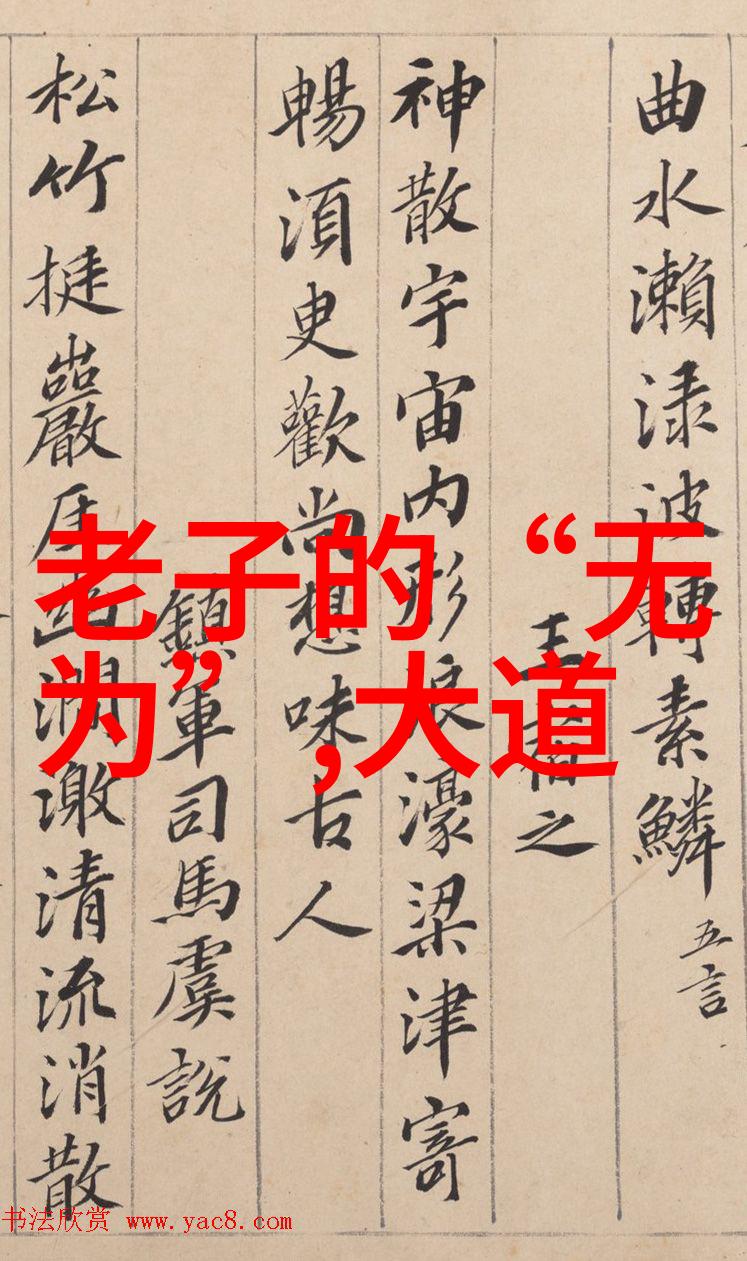 老子的“无
为”,大道
曲水瀨渌波轉素鱗 五言
王宿之
神散宇宙内形浪濠梁津寄
暢須臾歡尚想味古人
鎮軍司馬虞說
松竹挺巖崖幽澗激清流消散
书法欣赏 www.yac8.com